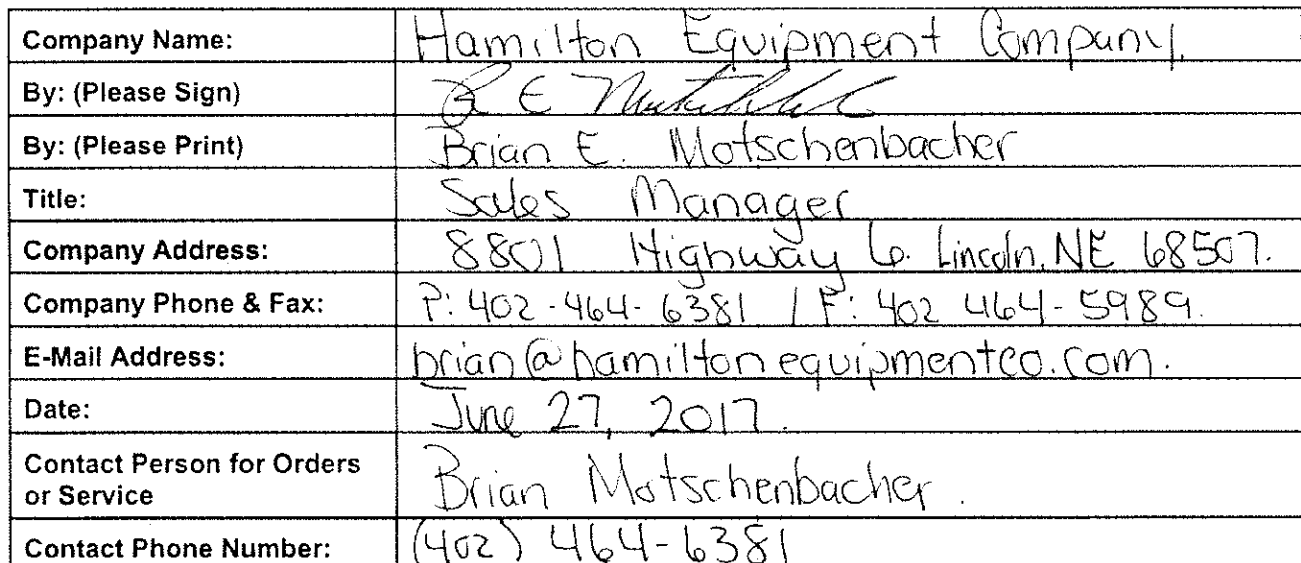 Company Name: Hamilton Equipment Company.
By: (Please Sign) E
By: (Please Print) Brian E. Motschenbacher
Title: Sales Manager
Company Address: 8801 Highway 6. Lincoln, NE 68507.
Company Phone & Fax: P: 402-464-6381 / F: 402 464-5989.
E-Mail Address: brian@hamiltonequipmentco.com.
Date: June 27, 2017.
Contact Person for Orders
or Service Brian Motschenbacher.
Contact Phone Number: (402) 464-6381